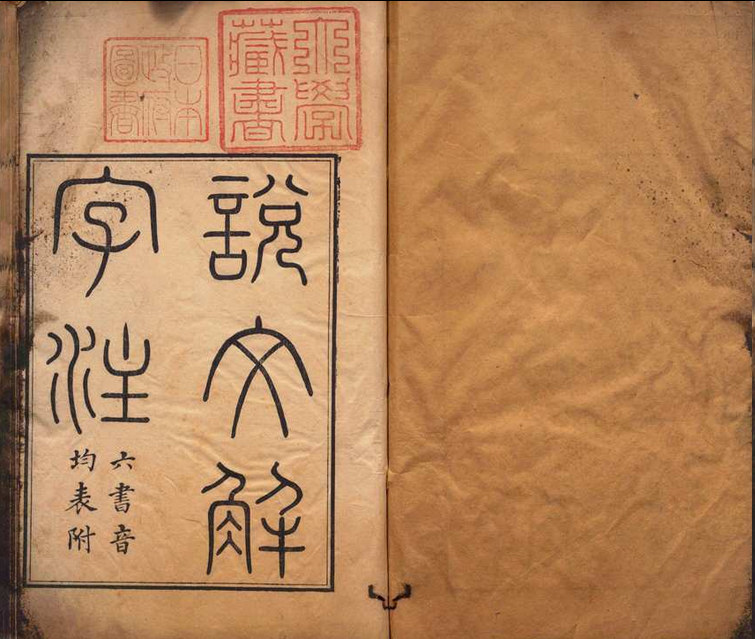 學
藏書
日本
政府
圖書
說文解
字注
六書音
均表附